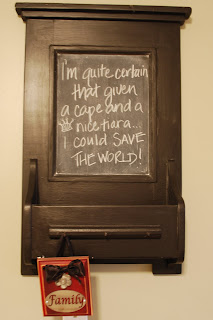 I'm quite certain
that given
a cape and a
nice tiara...
i could SAVE
THE WORLD!
Family